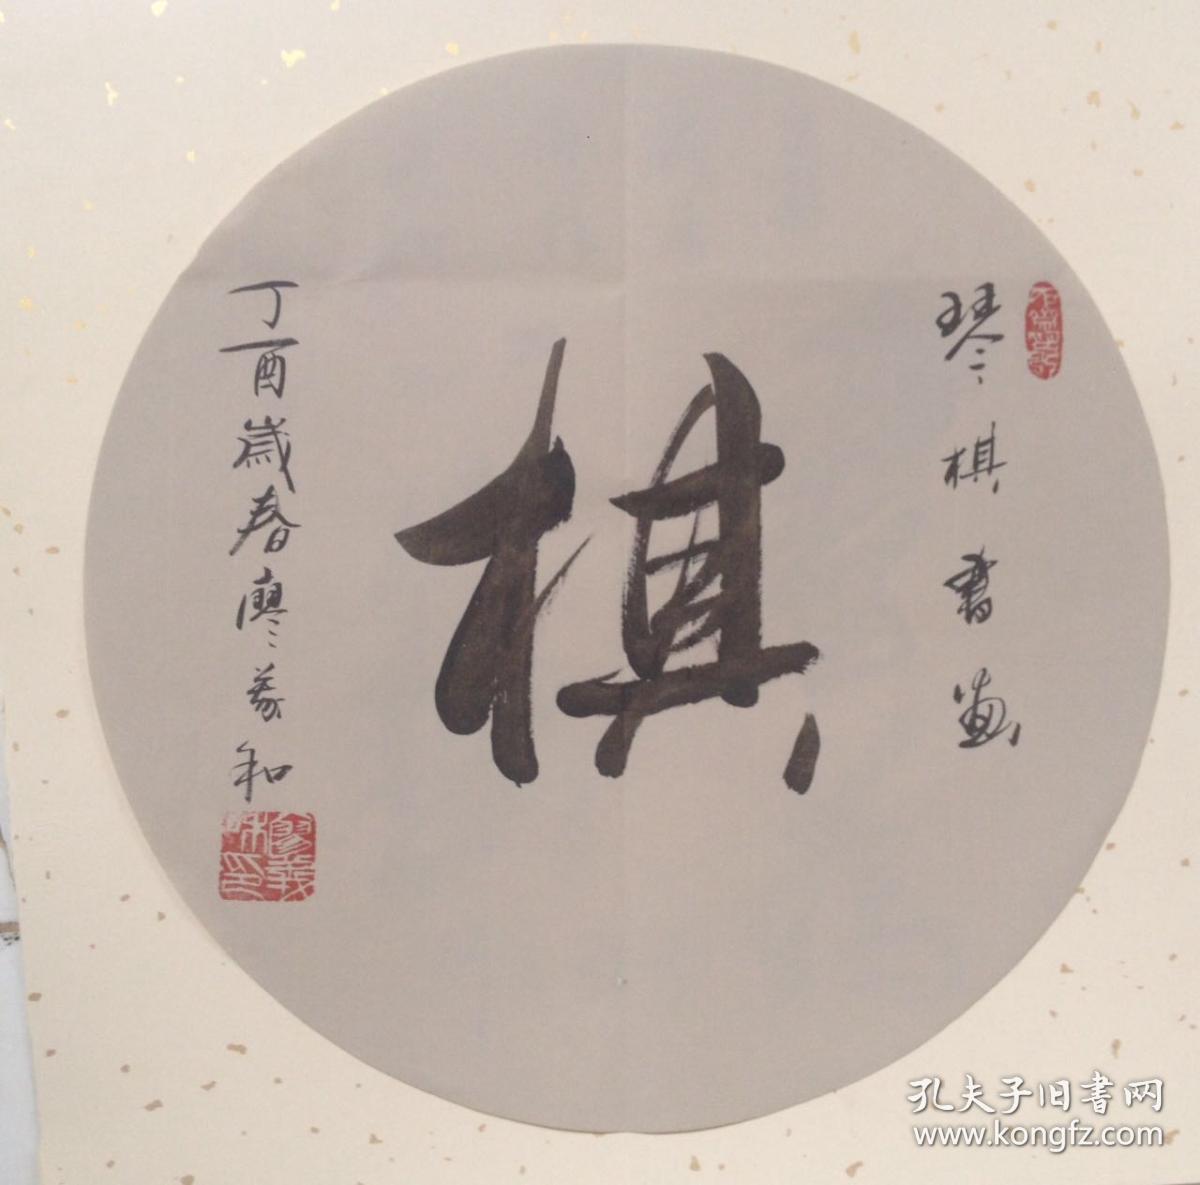 琴棋書畫
棋
丁酉歲春廖義和
廖義和印
孔夫子旧書网
www.kongfz.com